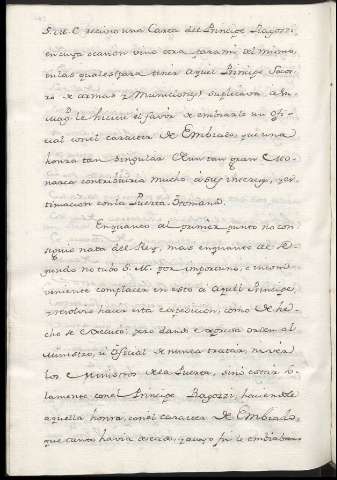 S. M. C. recivio una Carta del Principe Ragozzi,
en cuya ocasion vino otra para mi del mismo,
en las quales para tener aquel Principe Socor-
ro de armas, y Municiones suplicava a Su
Mag.d le hiciese el favor de embiarle un ofi-
cial con el caracter de Embiado, que una
honra tan singular de un tan gran Mo-
narca contribuiria mucho a sus intereses, y es-
timacion con la Puerta Otomana.
Enquanto al primer punto no con-
siguio nada del Rey, mas enquanto al Se-
gundo no tubo S. M. por importuno, e incon-
veniente complacer en esto a aquel Principe,
y resolvio hacer esta expedicion, como de he-
cho se executó; pero dando expresa orden al
Ministro, u Oficial de nunca tratar, ni ver a
los Ministros de la Puerta, sino estar so-
lamente con el Principe Ragozzi, haciendole
aquella honra, con el caracter de Embiado,
que tanto havia deseado, y a cuyo fin le embiaba